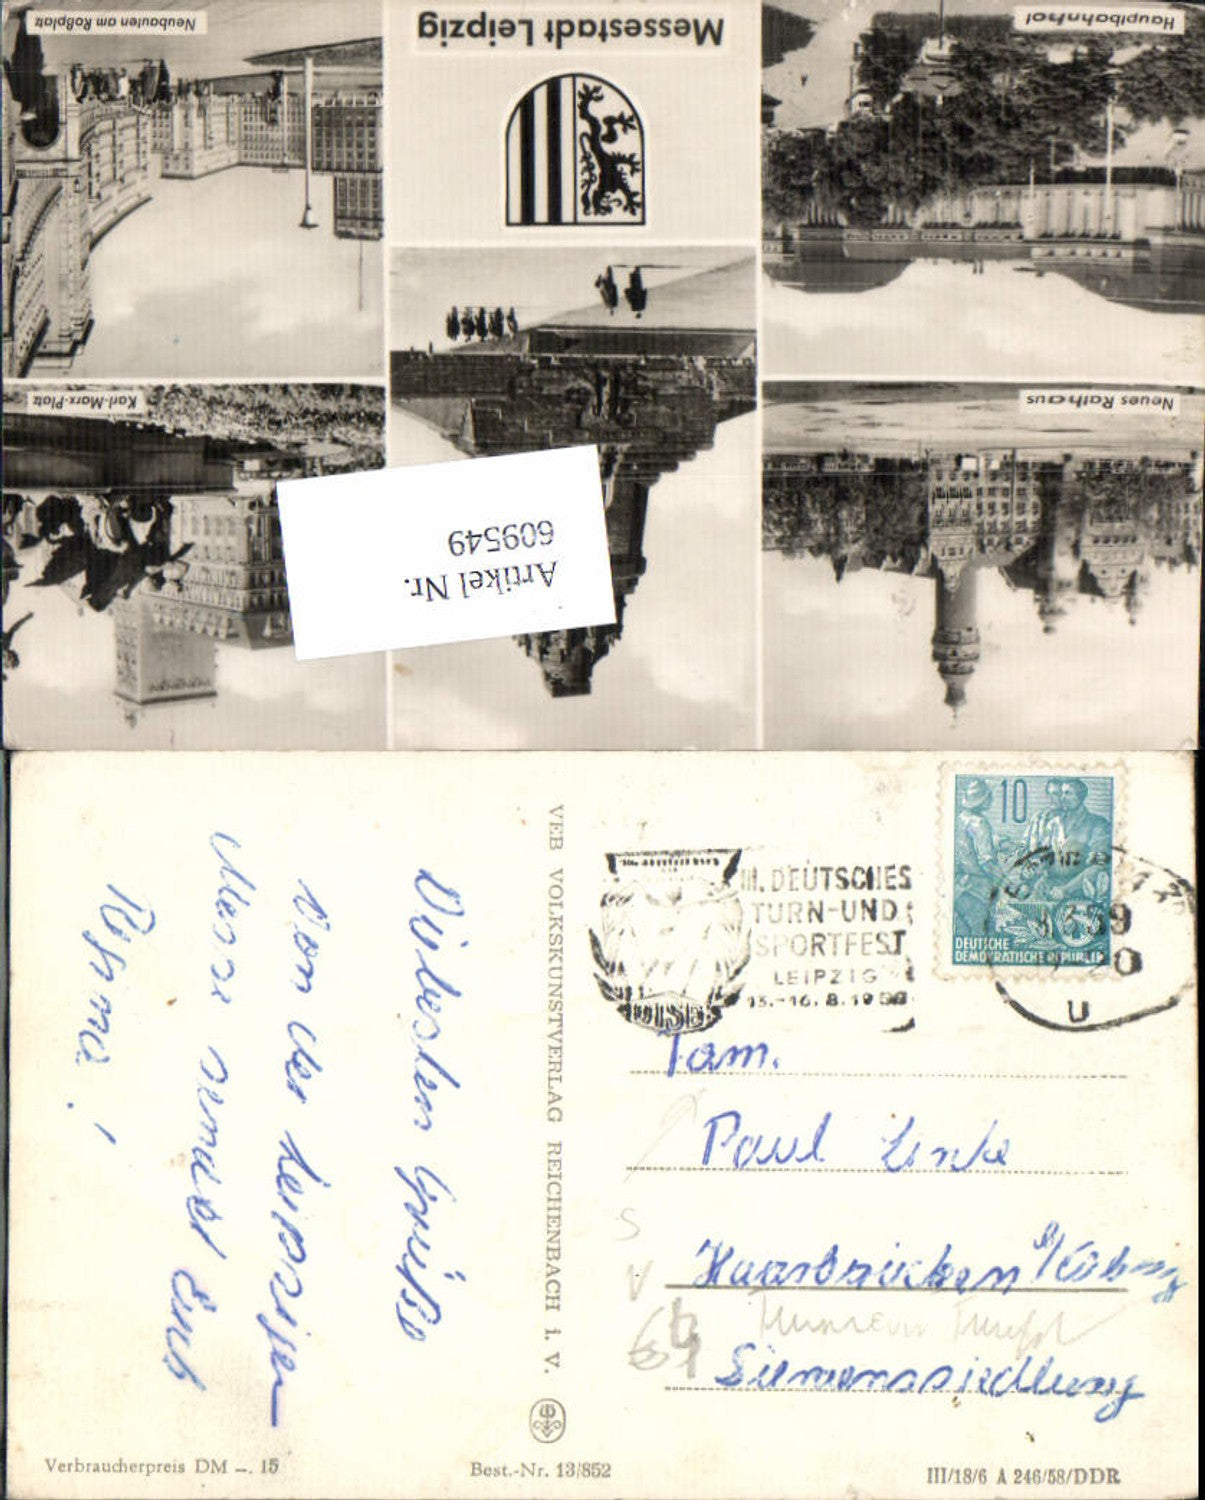 Messestadt Leipzig
Neubauten am Roßplatz
Hauptbahnhof
Karl-Marx-Platz
Neues Rathaus
Artikel Nr.
609549
10
DEUTSCHE
DEMOKRATISCHE REPUBLIK
III. DEUTSCHES
TURN-UND
SPORTFEST
LEIPZIG
13.-16.8.1959
U
Fam.
Paul Linke
Haarbrücken b/Coburg
Siemenssiedlung
64
VEB VOLKSKUNSTVERLAG REICHENBACH i. V.
Die besten Grüße
von der Leipziger
Messe sendet Euch
Verbraucherpreis DM –. 15
Best.-Nr. 13/852
III/18/6 A 246/58/DDR